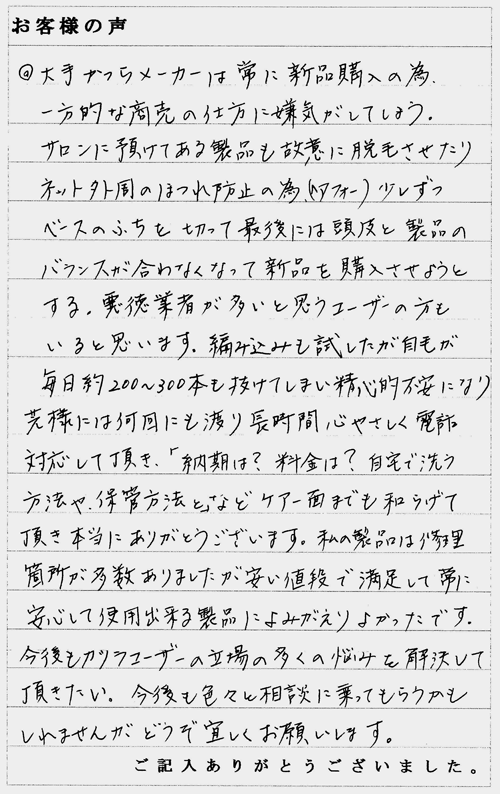 お客様の声
@大手かつらメーカーは常に新品購入の為、
一方的な商売の仕方に嫌気がしてしまう。
サロンに預けてある製品も故意に脱毛させたり
ネット外周のほつれ防止の為(ヘアフォー)少しずつ
ベースのふちを切って最後には頭皮と製品の
バランスが合わなくなって新品を購入させようと
する。悪徳業者が多いと思うユーザーの方も
いると思います。編み込みも試したが自毛が
毎日約200〜300本も抜けてしまい精心的不安になり
荒様には何回にも渡り長時間心やさしく電話
対応して頂き、「納期は?料金は?自宅で洗う
方法や、保管方法と」などケアー面までも和らげて
頂き本当にありがとうございます。私の製品は修理
箇所が多数ありましたが安い値段で満足して常に
安心して使用出来る製品によみがえりよかったです。
今後もカツラユーザーの立場の多くの悩みを解決して
頂きたい。今後も色々と相談に乗ってもらうかも
しれませんがどうぞ宜しくお願いします。
ご記入ありがとうございました。